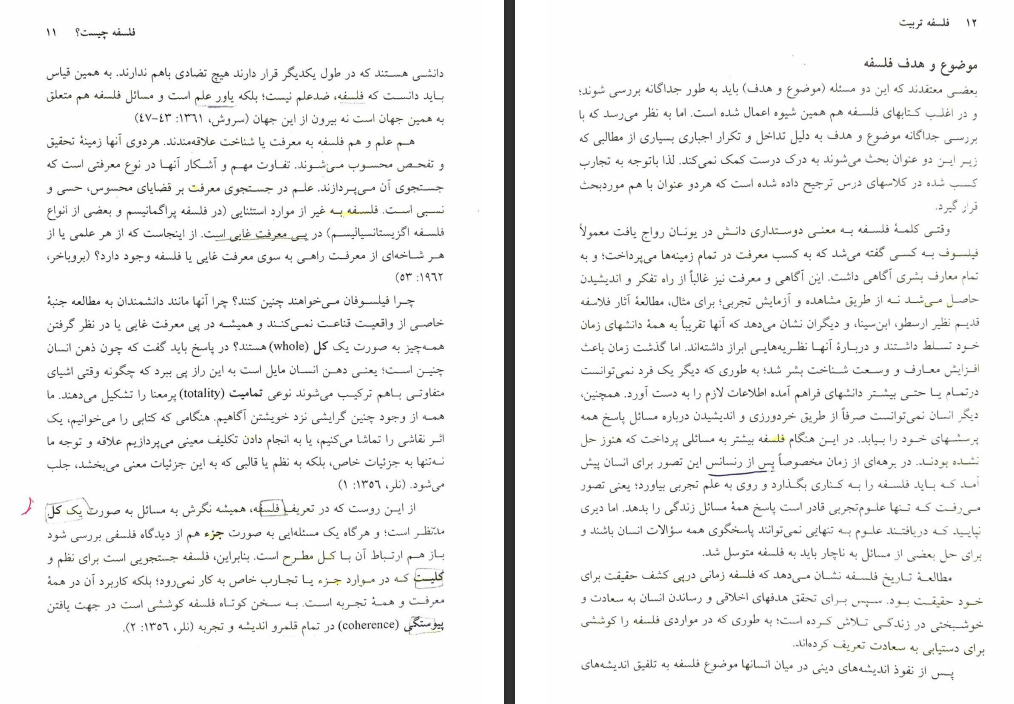 فلسفه چیست؟ ۱۱
دانشی هستند که در طول یکدیگر قرار دارند هیچ تضادی باهم ندارند. به همین قیاس
باید دانست که فلسفه، ضدعلم نیست؛ بلکه یاور علم است و مسائل فلسفه هم متعلق
به همین جهان است نه بیرون از این جهان (سروش، ۱۳۶۱: ۴۳-۴۷)
هـم علم و هم فلسفه به معرفت یا شناخت علاقه‌مندند. هردوی آنها زمینهٔ تحقیق
و تفحـص محسوب می‌شوند. تفاوت مهـم و آشـکار آنهـا در نوع معرفتی است که
جستجوی آن می‌پردازند. علـم در جستجوی معرفت بر قضایای محسوس، حسی و
نسبی است. فلسفه به غیر از موارد استثنایی (در فلسفه پراگماتیسم و بعضی از انواع
فلسفه اگزیستانسیالیسم) در پـی معرفت غایی است. از اینجاست که از هر علمی یا از
هر شاخه‌ای از معرفت راهـی به سوی معرفت غایی یا فلسفه وجود دارد؟ (بروباخر،
۱۹۶۲: ۵۳)
چـرا فیلسوفان مـی‌خواهند چنین کنند؟ چرا آنها مانند دانشمندان به مطالعه جنبهٔ
خاصـی از واقعیـت قناعـت نمـی‌کننـد و همیشـه در پی معرفت غایی یا در نظر گرفتن
همه‌چیز به صورت یک کل (whole) هستند؟ در پاسخ باید گفت که چون ذهن انسان
چنین است؛ یعنی ذهن انسان مایل است به این راز پی ببرد که چگونه وقتی اشیای
متفاوتی باهم ترکیب می‌شوند نوعی تمامیت (totality) پرمعنا را تشکیل می‌دهند. ما
همـه از وجود چنین گرایشی نزد خویشتن آگاهیم. هنگامی که کتابی را می‌خوانیم، یک
اثـر نقاشی را تماشا می‌کنیم، یا به انجام دادن تکلیف معینی می‌پردازیم علاقه و توجه ما
نـه‌تنها به جزئیات خاص، بلکه به نظم یا قالبی که به این جزئیات معنی می‌بخشد، جلب
می‌شود. (نلر، ۱۳۵۶: ۱)
از ایـن روسـت که در تعریف فلسفه، همیشه نگرش به مسائل به صورت یک کل
مدّنظـر است؛ و هرگاه یک مسئله‌ایی به صورت جزء هم از دیدگاه فلسفی بررسی شود
بـاز هـم ارتبـاط آن بـا کـل مطـرح است. بنابراین، فلسفه جستجویی است برای نظم و
کلیـت کـه در مـوارد جـزء یـا تجارب خاص به کار نمی‌رود؛ بلکه کاربرد آن در همهٔ
معرفـت و همهٔ تجربه است. بـه سـخن کوتـاه فلسفه کوششی است در جهت یافتن
پیوستگی (coherence) در تمام قلمرو اندیشه و تجربه (نلر، ۱۳۵۶: ۲).
۱۲ فلسفه تربیت
موضوع و هدف فلسفه
بعضـی معتقدند که این دو مسئله (موضوع و هدف) باید به طور جداگانه بررسی شوند؛
و در اغلـب کتابهای فلسفه هم همین شیوه اعمال شده است. اما به نظر می‌رسد که با
بررسی جداگانه موضوع و هدف به دلیل تداخل و تکرار اجباری بسیاری از مطالبی که
زیـر ایـن دو عنوان بحث می‌شوند به درک درست کمک نمی‌کند. لذا باتوجه به تجارب
کسب شده در کلاسهای درس ترجیح داده شده است که هردو عنوان با هم موردبحث
قرار گیرد.
وقتـی کلمهٔ فلسفه بـه معنـی دوسـتداری دانش در یونـان رواج یافت معمولاً
فیلسـوف بـه کسـی گفته می‌شد که به کسب معرفت در تمام زمینه‌ها می‌پرداخت؛ و به
تمام معارف بشری آگاهی داشت. این آگاهی و معرفت نیز غالباً از راه تفکر و اندیشیدن
حاصـل مـی‌شـد نـه از طریق مشاهده و آزمایش تجربی؛ برای مثال، مطالعهٔ آثار فلاسفه
قدیـم نظیر ارسطو، ابن‌سینا، و دیگران نشان می‌دهد که آنها تقریباً به همهٔ دانشهای زمان
خـود تسلط داشتند و دربـارهٔ آنهـا نظریـه‌هایـی ابراز داشته‌اند. اما گذشت زمان باعث
افـزایش معـارف و وسعـت شناخت بشر شد؛ به طوری که دیگر یک فرد نمی‌توانست
درتمـام یـا حتـی بیشتـر دانشهای فراهم آمده اطلاعات لازم را به دست آورد. همچنین،
دیگر انسان نمی‌توانست صرفاً از طریق خردورزی و اندیشیدن درباره مسائل پاسخ همه
پرسشـهای خـود را بیـابد. در ایـن هنگام فلسفه بیشتر به مسائلی پرداخت که هنوز حل
نشـده بودنـد. در برهه‌ای از زمان مخصوصاً پس از رنسانس این تصور برای انسان پیش
آمد کـه بایـد فلسفه را بـه کنـاری بگـذارد و روی به علم تجربی بیاورد؛ یعنی تصور
مـی‌رفـت کـه تنهـا علـوم‌تجربی قادر است پاسخ همهٔ مسائل زندگی را بدهد. اما دیری
نپاییـد کـه دریافتنـد علـوم بـه تنهایی نمی‌توانند پاسخگوی همه سؤالات انسان باشند و
برای حل بعضی از مسائل به ناچار باید به فلسفه متوسل شد.
مطالعـهٔ تـاریخ فلسفه نشـان مـی‌دهد که فلسفه زمانی درپی کشف حقیقت برای
خـود حقیقت بـود. سـپس بـرای تحقق هدفهای اخلاقی و رساندن انسان به سعادت و
خوشـبختی در زندگـی تـلاش کـرده است؛ به طوری که در مواردی فلسفه را کوششی
برای دستیابی به سعادت تعریف کرده‌اند.
پـس از نفوذ اندیشه‌های دینی در میان انسانها موضوع فلسفه به تلفیق اندیشه‌های